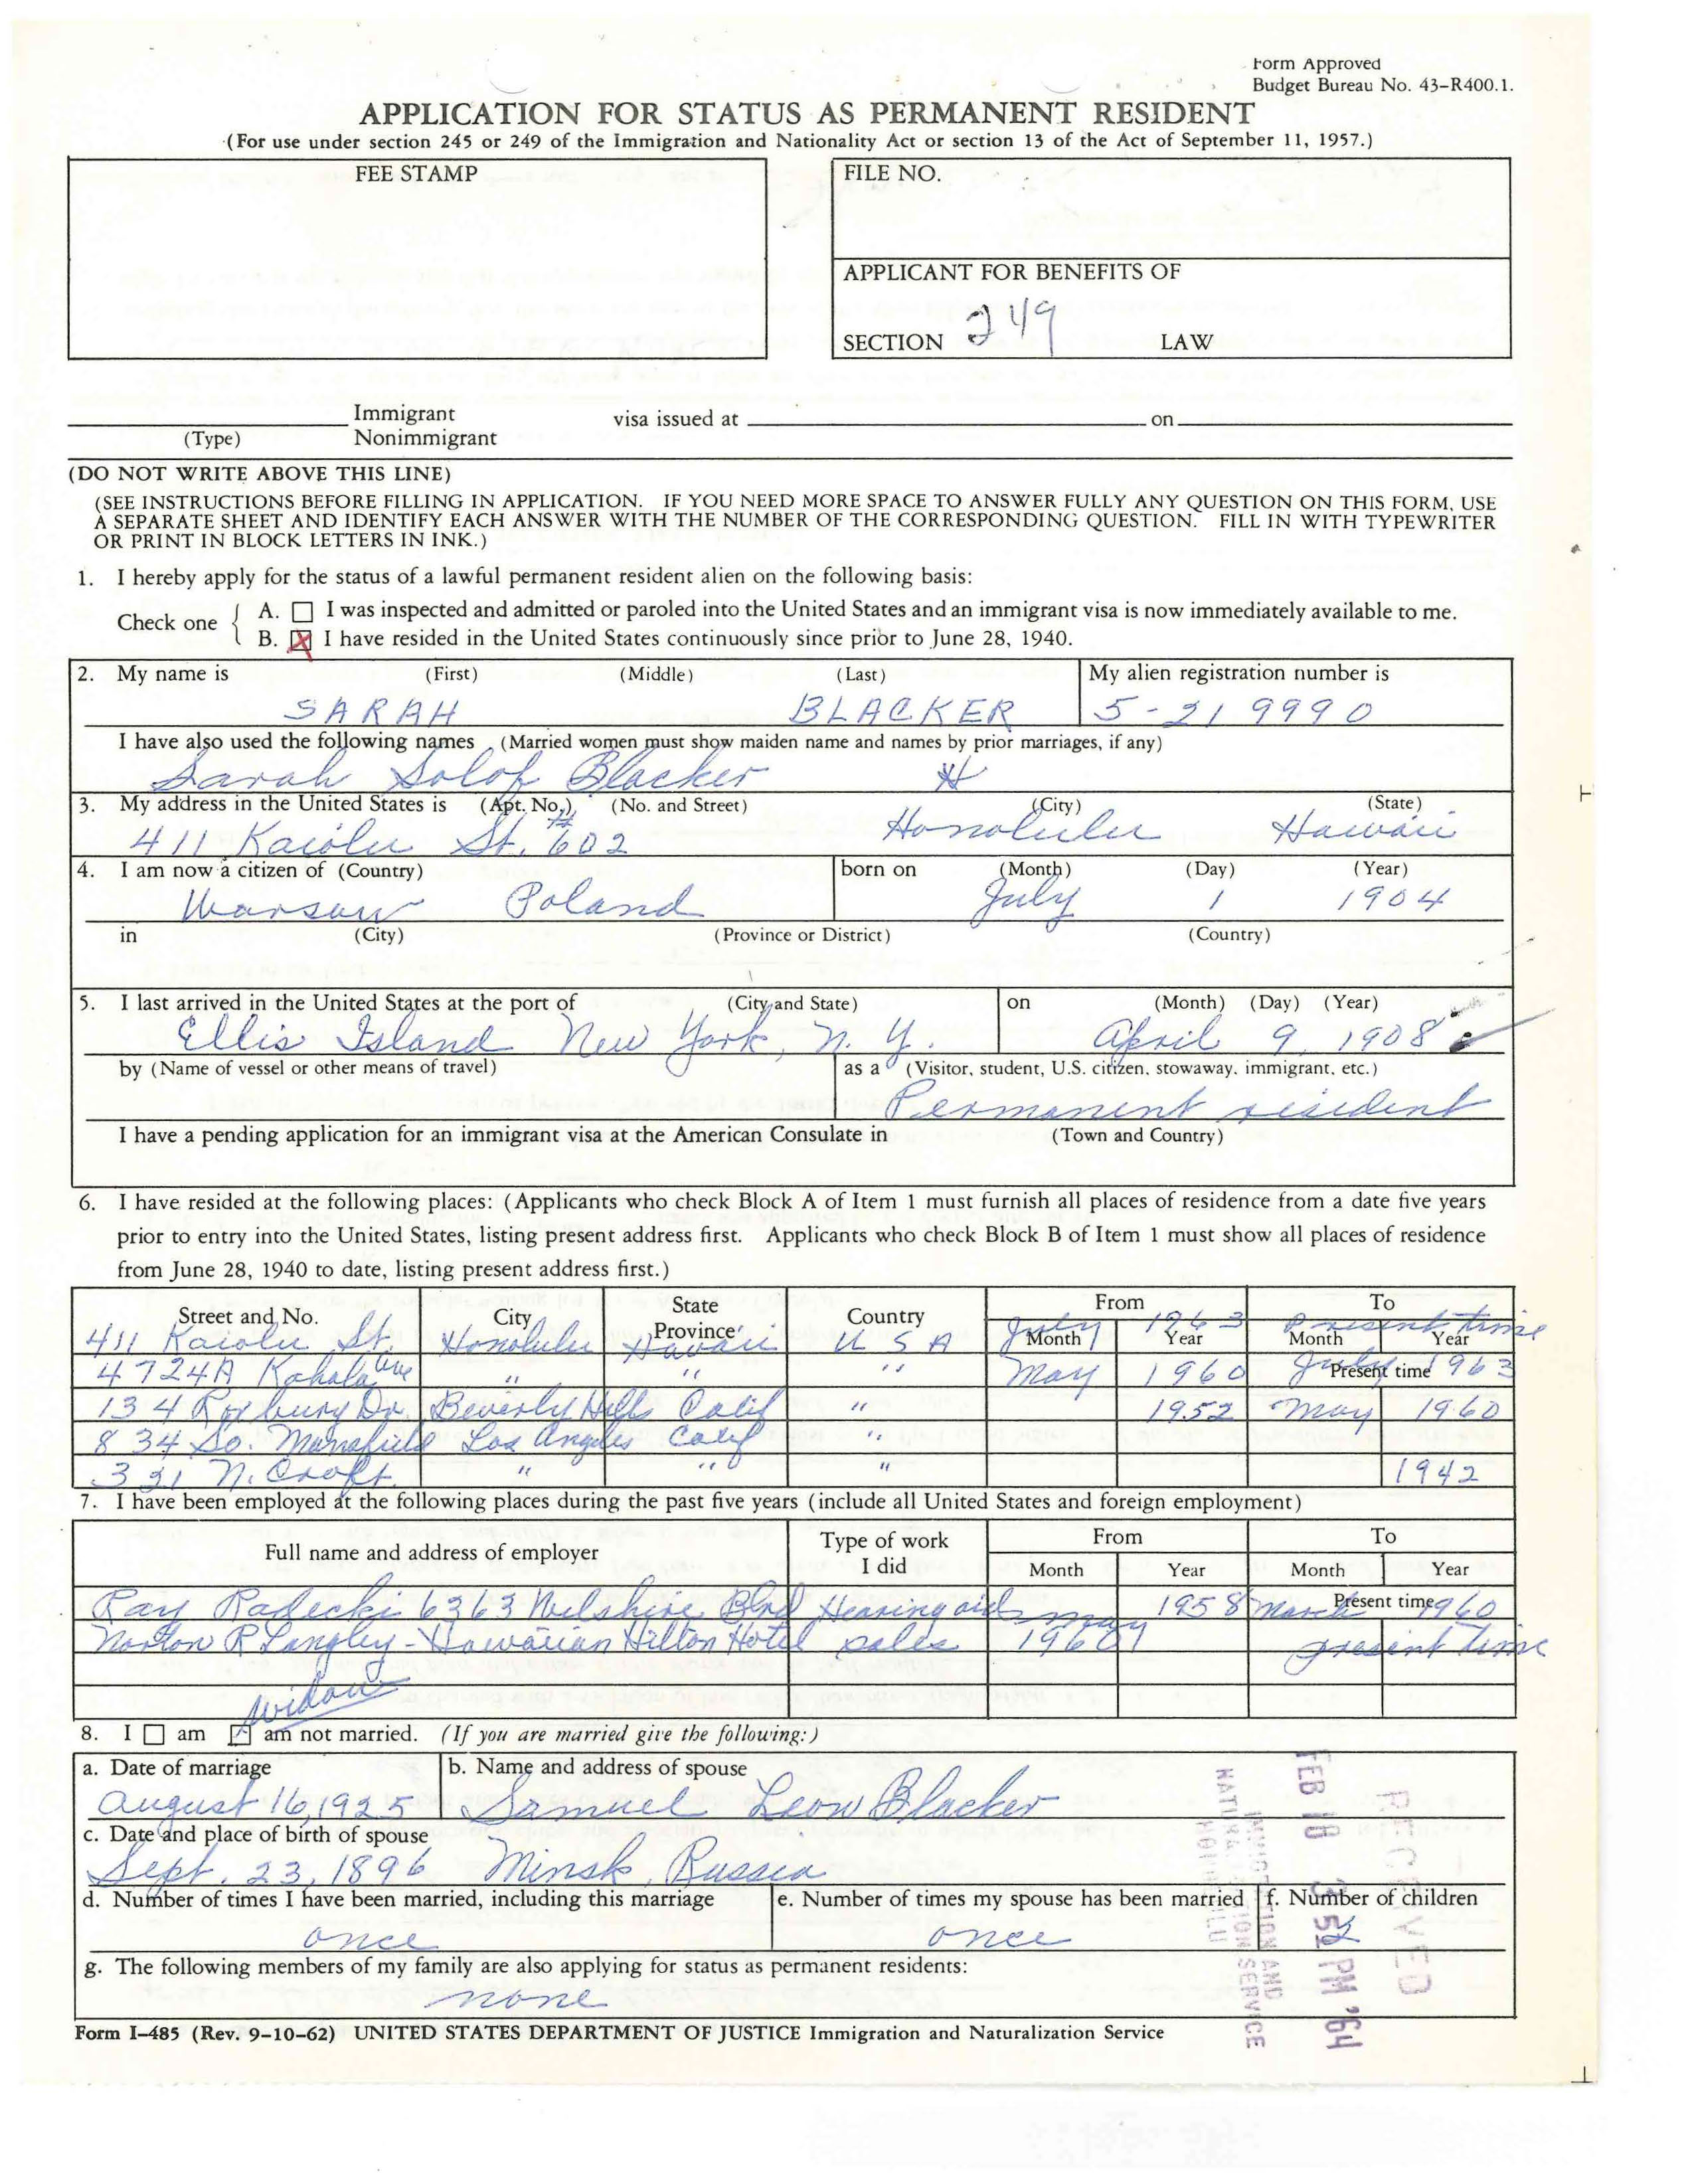 Form Approved
Budget Bureau No. 43-R400.1.
APPLICATION FOR STATUS AS PERMANENT RESIDENT
(For use under section 245 or 249 of the Immigration and Nationality Act or section 13 of the Act of September 11, 1957.)
FEE STAMP
FILE NO.
APPLICANT FOR BENEFITS OF
SECTION 249 LAW
(Type) Immigrant Nonimmigrant visa issued at on
(DO NOT WRITE ABOVE THIS LINE)
(SEE INSTRUCTIONS BEFORE FILLING IN APPLICATION. IF YOU NEED MORE SPACE TO ANSWER FULLY ANY QUESTION ON THIS FORM, USE
A SEPARATE SHEET AND IDENTIFY EACH ANSWER WITH THE NUMBER OF THE CORRESPONDING QUESTION. FILL IN WITH TYPEWRITER
OR PRINT IN BLOCK LETTERS IN INK.)
1. I hereby apply for the status of a lawful permanent resident alien on the following basis:
Check one
A. I was inspected and admitted or paroled into the United States and an immigrant visa is now immediately available to me.
B. X I have resided in the United States continuously since prior to June 28, 1940.
2. My name is (First) (Middle) (Last) My alien registration number is
SARAH BLACKER 5-219990
I have also used the following names (Married women must show maiden name and names by prior marriages, if any)
Sarah Solof Blacker
3. My address in the United States is (Apt. No.) (No. and Street) (City) (State)
411 Kaiolu St. #602 Honolulu Hawaii
4. I am now a citizen of (Country) born on (Month) (Day) (Year)
Warsaw Poland July 1 1904
in (City) (Province or District) (Country)
5. I last arrived in the United States at the port of (City and State) on (Month) (Day) (Year)
Ellis Island New York, N.Y. April 9, 1908
by (Name of vessel or other means of travel) as a (Visitor, student, U.S. citizen, stowaway, immigrant, etc.)
Permanent resident
I have a pending application for an immigrant visa at the American Consulate in (Town and Country)
6. I have resided at the following places: (Applicants who check Block A of Item 1 must furnish all places of residence from a date five years
prior to entry into the United States, listing present address first. Applicants who check Block B of Item 1 must show all places of residence
from June 28, 1940 to date, listing present address first.)
Street and No. City State Province Country From To
Month Year Month Year
411 Kaiolu St. Honolulu Hawaii U S A July 1963 Present time
4724A Kahala Ave " " " May 1960 July 1963
Present time
134 Roxbury Dr. Beverly Hills Calif " 1952 May 1960
834 So. Mansfield Los Angeles Calif "
331 N. Croft " " " 1942
7. I have been employed at the following places during the past five years (include all United States and foreign employment)
Full name and address of employer Type of work I did From To
Month Year Month Year
Ray Radecki 6363 Wilshire Blvd Hearing aids 1958 March 1960
Present time
Norton R Langley - Hawaiian Hilton Hotel sales May 1960 present time
widow
8. I am am not married. (If you are married give the following:)
a. Date of marriage b. Name and address of spouse
August 16, 1925 Samuel Leon Blacker
c. Date and place of birth of spouse
Sept. 23, 1896 Minsk, Russia
d. Number of times I have been married, including this marriage e. Number of times my spouse has been married f. Number of children
once once 2
g. The following members of my family are also applying for status as permanent residents:
none
RECEIVED
FEB 18 3 52 PM '64
IMMIGRATION AND
NATURALIZATION SERVICE
HONOLULU
Form I-485 (Rev. 9-10-62) UNITED STATES DEPARTMENT OF JUSTICE Immigration and Naturalization Service